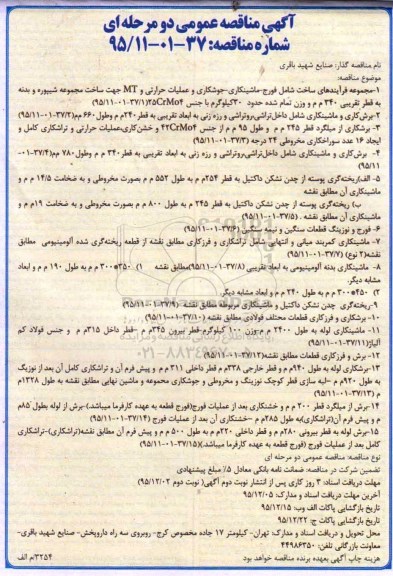 آگهی مناقصه عمومی دو مرحله ای
شماره مناقصه: ۳۷-۰۱-۹۵/۱۱
نام مناقصه گذار: صنایع شهید باقری
موضوع مناقصه:
۱-مجموعه فرآیندهای ساخت شامل فورج-ماشینکاری-جوشکاری و عملیات حرارتی و MT جهت ساخت مجموعه شیپوره و بدنه
به قطر تقریبی ۳۴۰ م م و وزن تمام شده حدود ۳۰کیلوگرم با جنس ۲۵CrMo۴(۹۵/۱۱-۰۱-۳۷/۱)
۲-برش‌کاری و ماشینکاری شامل داخل‌تراشی،روتراشی و رزه زنی به ابعاد تقریبی به قطر۲۴۰م م وطول ۶۶۰ مم(۹۵/۱۱-۰۱-۳۷/۲)
۳- برشکاری از میلگرد قطر ۲۴۵ م م و طول ۹۵ م م از جنس ۴۲CrMo۴ و خشن‌کاری،عملیات حرارتی و تراشکاری کامل و
ایجاد ۱۶ عدد سوراخکاری مخروطی ۲۴ درجه (۹۵/۱۱-۰۱-۳۷/۳)
۴- برش‌کاری و ماشینکاری شامل داخل‌تراشی،روتراشی و رزه زنی به ابعاد تقریبی به قطر۳۴۰ م م وطول۷۸۰ مم(۳۷/۴-۰۱-
۹۵/۱۱)
۵-الف)ریخته‌گری پوسته از چدن نشکن داکتیل به قطر ۲۵۴م م به طول ۵۵۲ م م بصورت مخروطی و به ضخامت ۱۴/۵ م م و
ماشینکاری آن مطابق نقشه
ب) ریخته‌گری پوسته از چدن نشکن داکتیل به قطر ۲۴۵ م م به طول ۸۰۰ م م بصورت مخروطی و به ضخامت ۱۹م م و
ماشینکاری آن مطابق نقشه .(۹۵/۱۱-۰۱-۳۷/۵)
۶- فورج و نوزینگ قطعات سنگین و نیمه سنگین (۹۵/۱۱-۰۱-۳۷/۶)
۷- ماشینکاری کمربند میانی و انتهایی شامل تراشکاری و فرزکاری مطابق نقشه از قطعه ریخته‌گری شده آلومینیومی مطابق
نقشه(۲ نوع) (۹۵/۱۱-۰۱-۳۷/۷)
۸- ماشینکاری بدنه آلومینیومی به ابعاد تقریبی (۹۵/۱۱-۰۱-۳۷/۸)مطابق نقشه ۱) ۳۵۰*۳۰۰ م م به طول ۱۹۰ م م و ابعاد
مشابه دیگر.
۲) ۴۵۰*۳۰۰ م م به طول ۲۴۰ م م و ابعاد مشابه دیگر
۹-ریخته‌گری چدن نشکن داکتیل و ماشینکاری مربوطه مطابق نقشه (۹۵/۱۱-۰۱-۳۷/۹)
۱۰- برشکاری و فرزکاری قطعات مختلف فولادی مطابق نقشه (۹۵/۱۱-۰۱-۳۷/۱۰)
۱۱- ماشینکاری لوله به طول ۲۴۰۰ م م-وزن ۱۰۰ کیلوگرم-قطر بیرون ۳۴۵م م -قطر داخل ۳۱۵م م و جنس فولاد کم
آلیاژ(۹۵/۱۱-۰۱-۳۷/۱۱)
۱۲- برش و فرزکاری قطعات مطابق نقشه(۹۵/۱۱-۰۱-۳۷/۱۲)
۱۳-برشکاری لوله به طول ۹۴۰م م و قطر خارجی ۳۳۸م م قطر داخلی ۳۱۱ م م و پیش فرم آن و تراشکاری کامل آن بعد از نوزینگ
به طول ۹۲۰م م -لبه سازی قطر کوچک نوزینگ و مخروطی و جوشکاری مجموعه و ماشین نهایی مطابق نقشه به طول ۱۳۲۸م
م (۹۵/۱۱-۰۱-۳۷/۱۳)
۱۴-برش از میلگرد قطر ۲۰۰ م م و خشنکاری بعد از عملیات فورج(فورج قطعه به عهده کارفرما میباشد)-برش از لوله بطول ۸۵م
م و پیش فرم آن(تراشکاری)به طول ۲۸۵م م -خشنکاری آن بعد از عملیات فورج (۹۵/۱۱-۰۱-۳۷/۱۴)
۱۵-برش لوله به قطر بیرونی ۲۸۰م م و قطر داخلی ۲۲۰م م به طول ۵۰۰ م م و پیش فرم آن مطابق نقشه(تراشکاری)-تراشکاری
کامل بعد از عملیات فورج (فورج قطعه به عهده کارفرما میباشد.)(۹۵/۱۱-۰۱-۳۷/۱۵)
نوع مناقصه: مناقصه عمومی دو مرحله ای
تضمین شرکت در مناقصه: ضمانت نامه بانکی معادل ۵٪ مبلغ پیشنهادی
مهلت دریافت اسناد: ۳ روز کاری پس از انتشار نوبت دوم آگهی( نوبت دوم ۹۵/۱۲/۰۲)
آخرین مهلت دریافت اسناد و مدارک: ۹۵/۱۲/۰۵
تاریخ بازگشایی پاکات الف وب: ۹۵/۱۲/۱۵
تاریخ بازگشایی پاکات ج: ۹۵/۱۲/۲۲
محل تحویل و دریافت اسناد و مدارک: تهران- کیلومتر ۱۷ جاده مخصوص کرج- روبروی سه راه داروپخش- صنایع شهید باقری-
معاونت بازرگانی تلفن: ۴۴۹۸۶۳۵۰
هزینه چاپ آگهی بعهده برنده مناقصه خواهد بود م/۳۲۵۴ الف